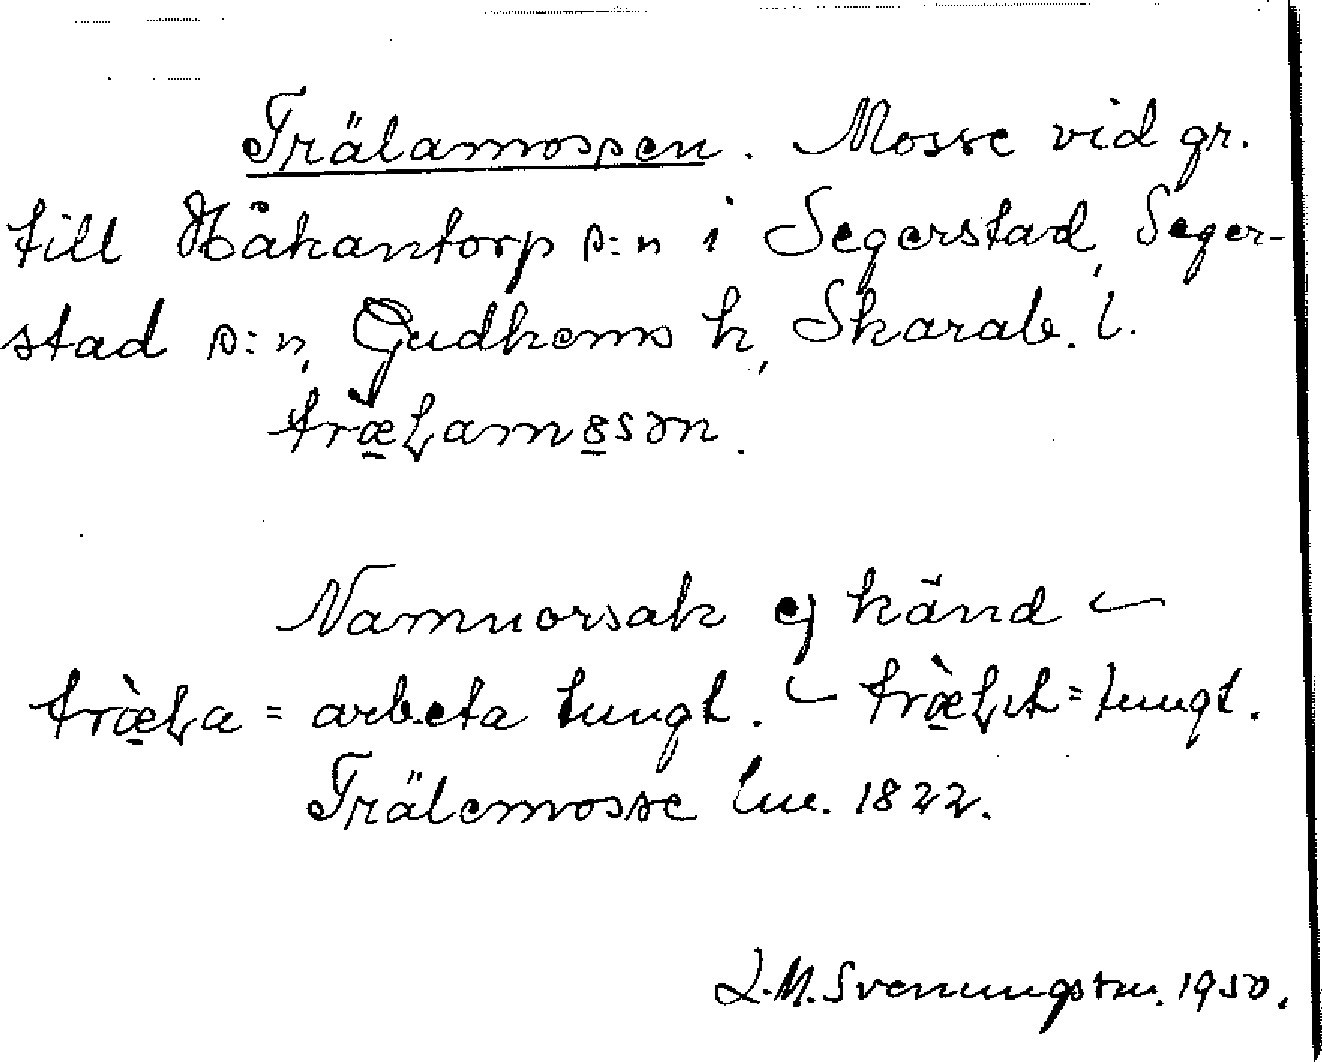 Trälamossen. Mosse vid gr.
till Håkantorp s:n i Segerstad, Seger-
stad s:n, Gudhems h, Skarab. l.
Namnorsak ej känd –
= arbeta tungt. – = tungt.
Trälemosse lm. 1822.
J.M. Svenungsson. 1950.